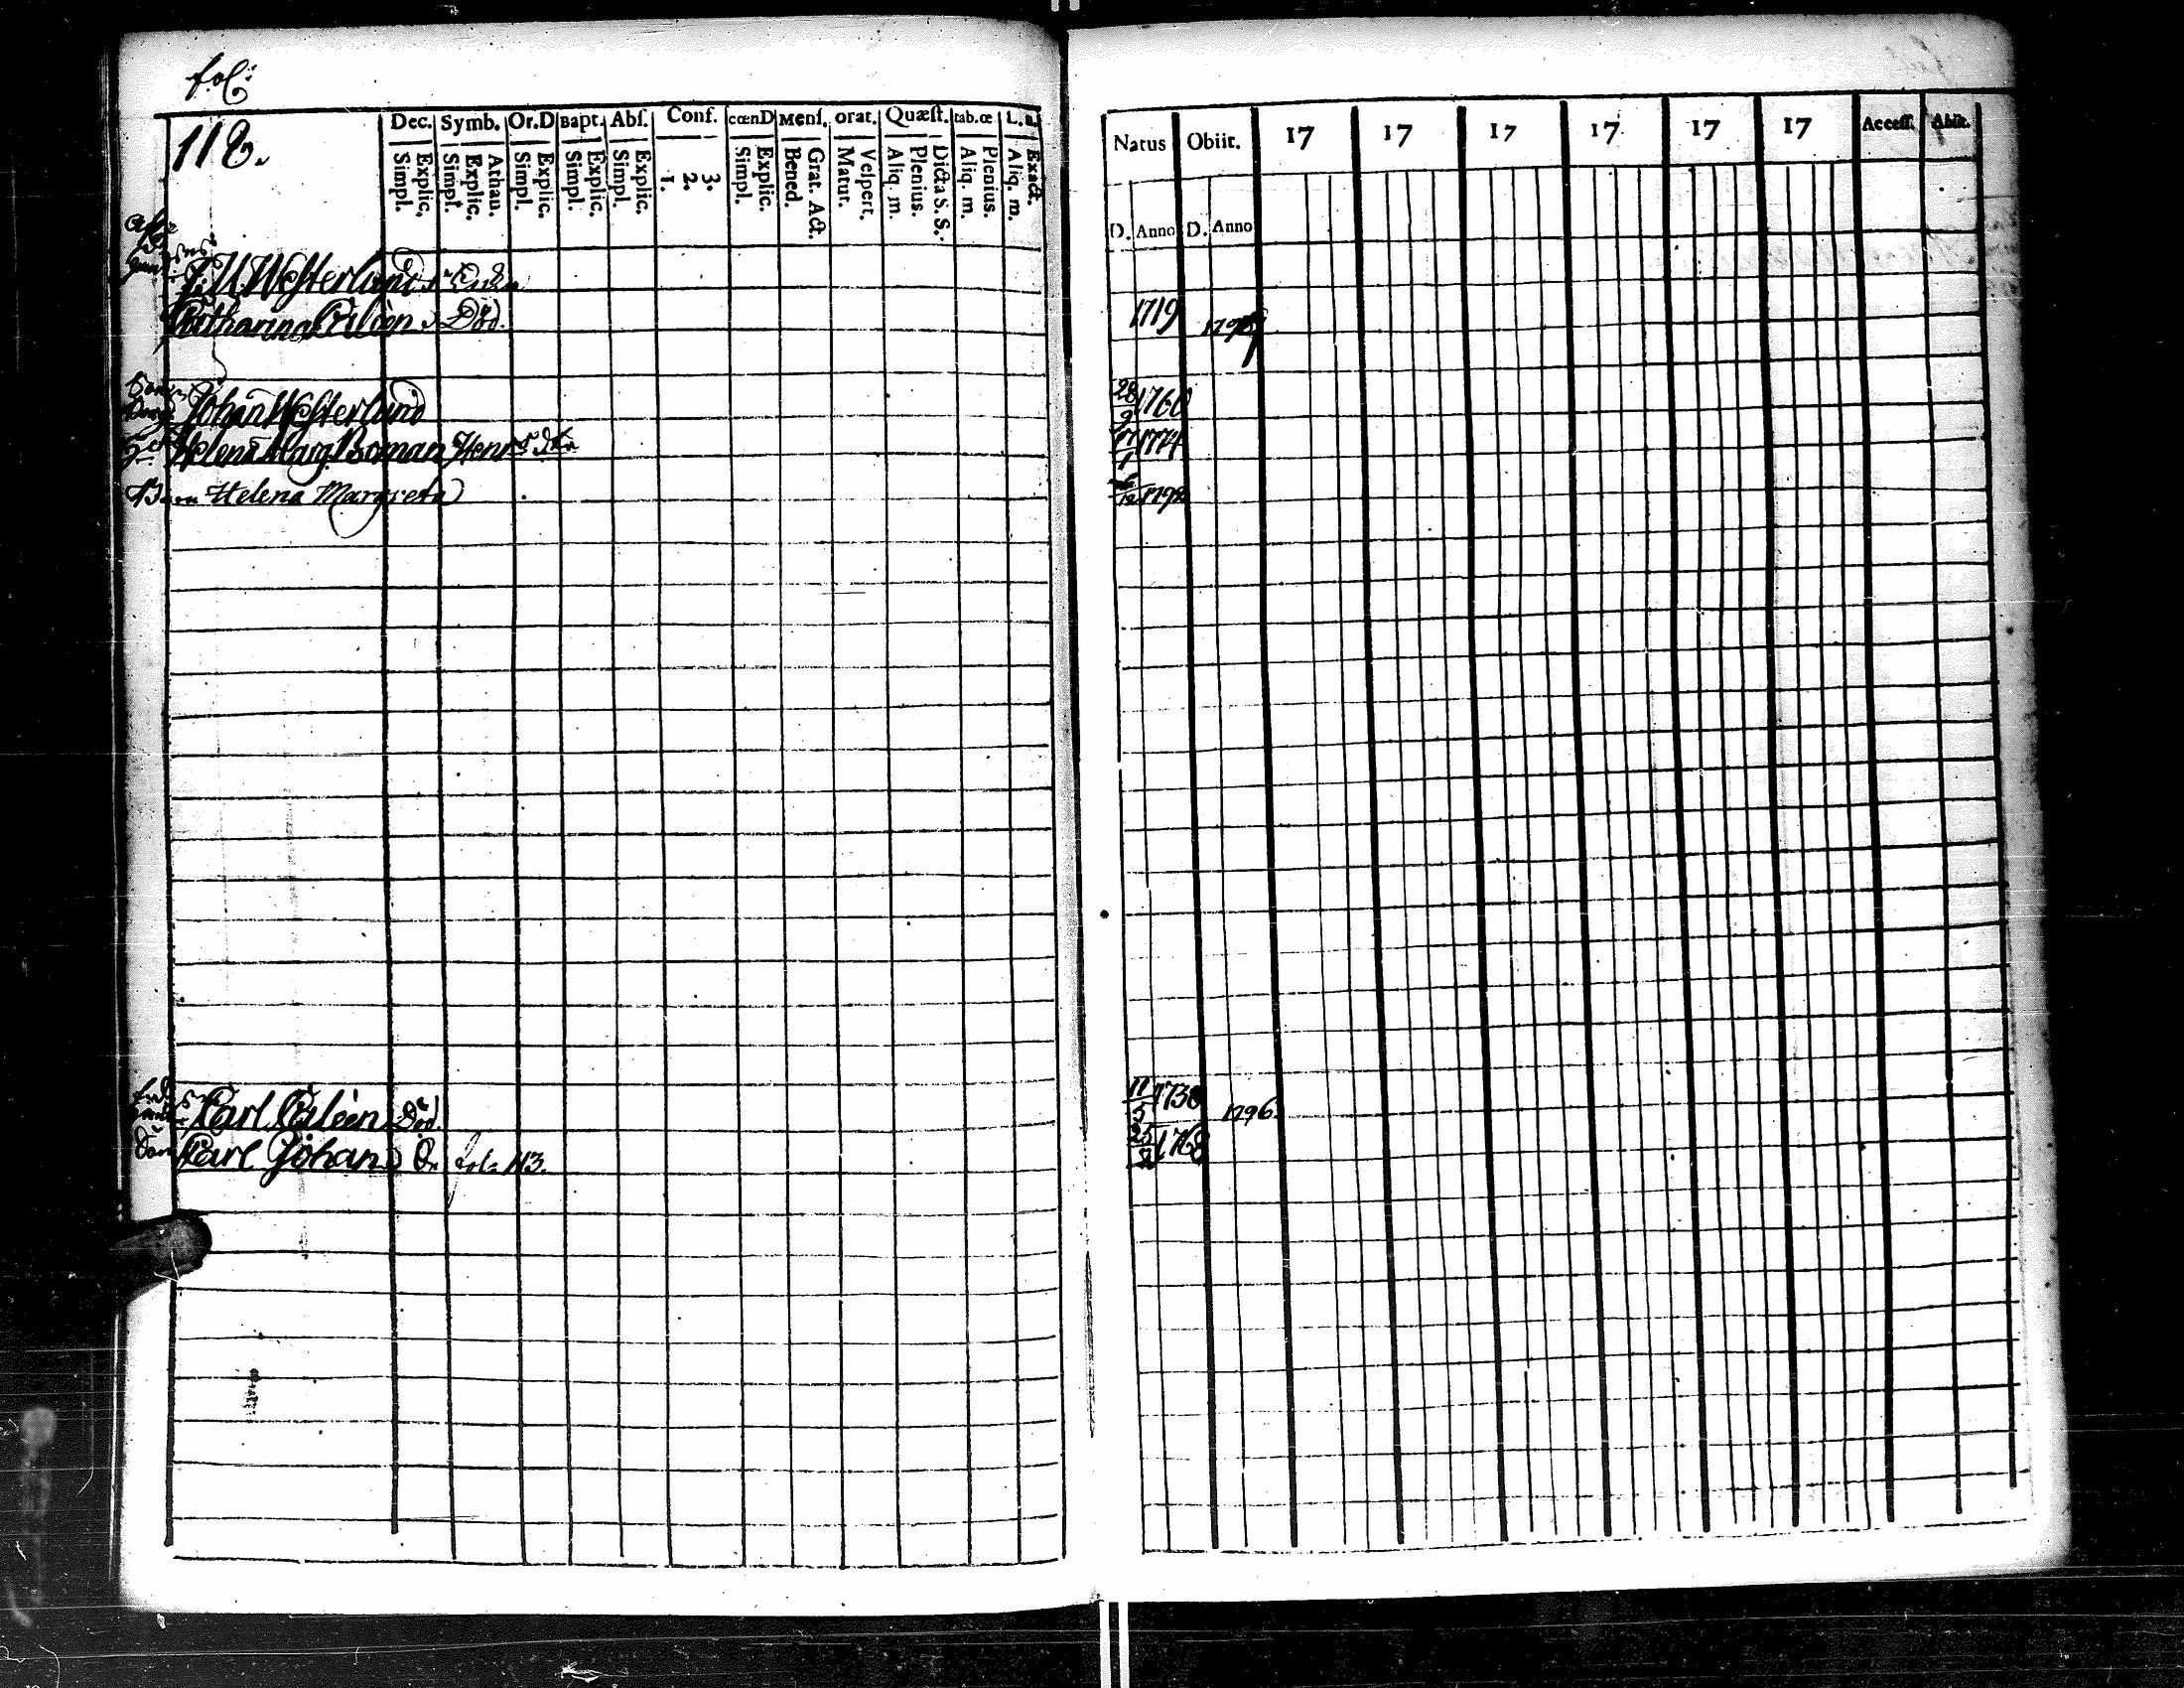 fol:
118.
Dec. Symb. Or.D Bapt. Abſ. Conf. cœnD Menſ. orat. Quæſt. tab.œ L. a.
Simpl. Explic. Simpl. Explic. Athan. Simpl. Explic. Simpl. Explic. Simpl. Explic. 1. 2. 3. Simpl. Explic. Bened. Grat. Act. Matut. Veſpert. Aliq. m. Plenius. Dicta S. S. Aliq. m. Plenius. Aliq. m. Exact.
Natus Obiit. 17 17 17 17 17 17 Acceſſ. Abiit.
D. Anno D. Anno
Westerlund Enka
Catharina Död. 1719
Johan Westerlund 28/9 1760
Helena Marg. Boman Henr. 17/1 1774
Barn Helena Margreta 1798
Carl Död. 11/5 1738 1796.
Son Carl Johan fol. 113. 25/2 1768